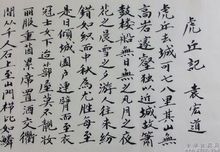 虎丘記 袁宏道
虎丘去城可七八里其山無
高岩邃壑獨以近城故簫
鼓樓船無日無之凡月之夜
花之晨雪之夕游人往來紛
錯如織而中秋為尤勝每至
是日傾城闔戶連臂而至衣
冠士女下迨蔀屋莫不靚妝
麗服重茵累席置酒交衢
間從千人石上至山門櫛比如鱗